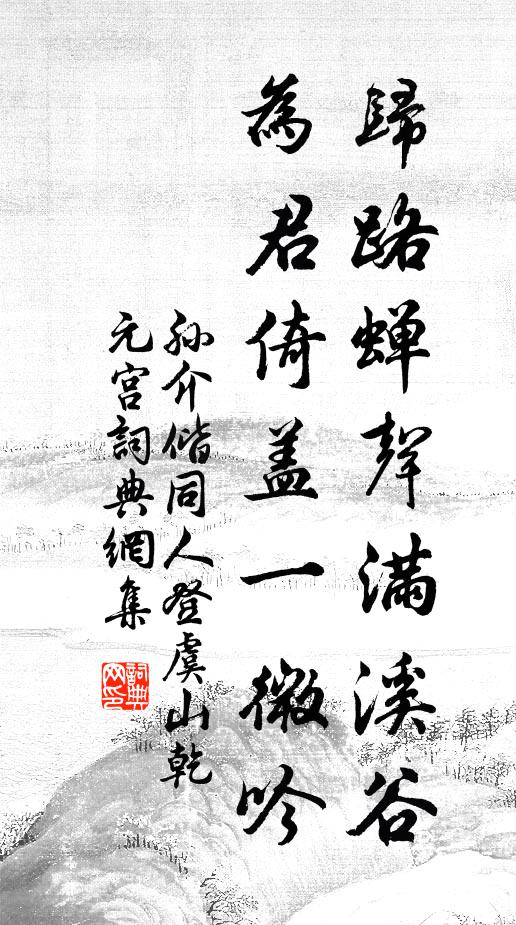 歸路蟬聲滿溪谷
為君倚蓋一微吟
孫介偕同人登虞山乾
元宮詞典網集
詞典網印